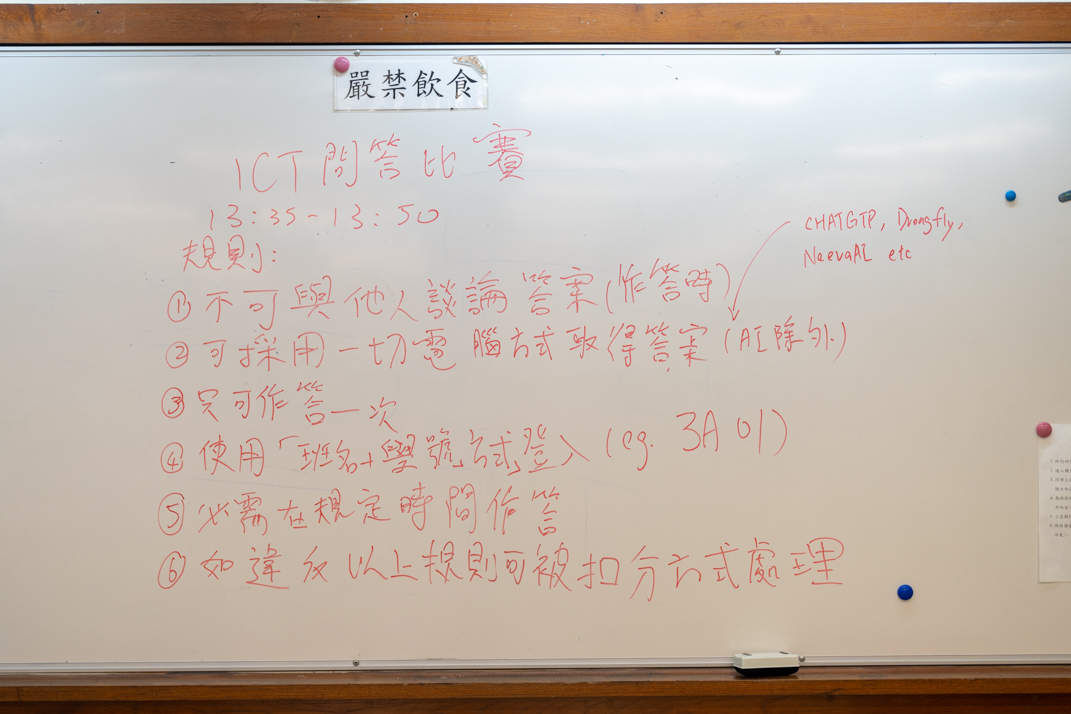 嚴禁飲食
ICT 問答比賽
13:35-13:50
規則:
CHATGTP, Drongfly,
NeevaAI etc
① 不可與他人談論答案(作答時)
② 可採用一切電腦方式取得答案 (AI除外)
③ 只可作答一次
④ 使用「班名+學號」方式登入 (eg. 3A 01)
⑤ 必需在規定時間作答
⑥ 如違反以上規則可被扣分方式處理